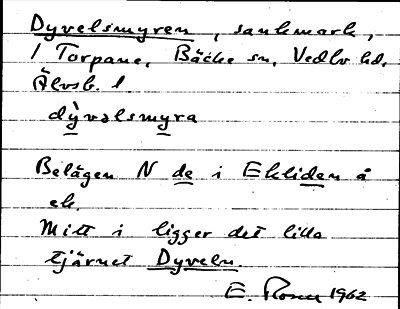 Dyvelsmyren, sankmark,
/ Torpane, Bäcke sn, Vedbo hd,
Älvsb. l.
dỳvəlsmyra
Belägen N de i Ekliden å
ek.
Mitt i ligger det lilla
tjärnet Dyveln.
E. 1962